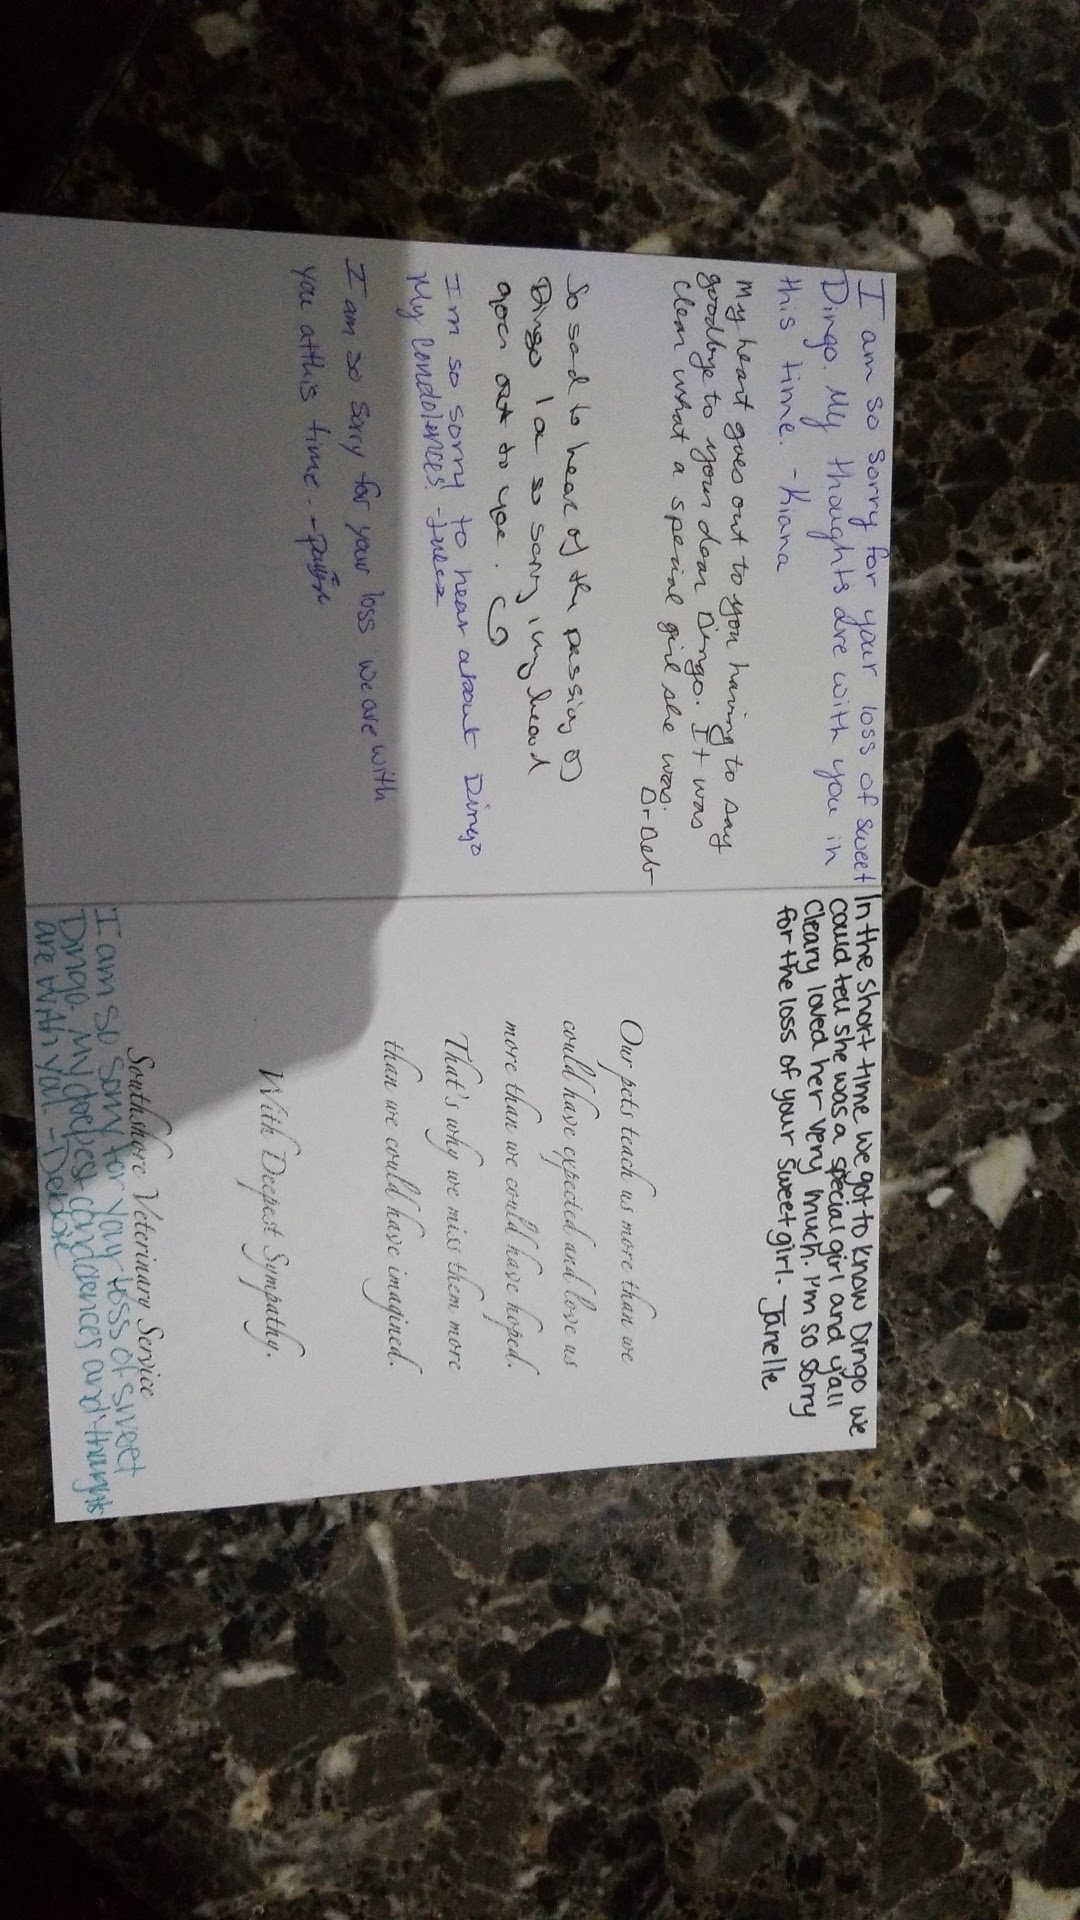 I am so sorry for your loss of sweet
Dingo. My thoughts are with you in
this time. - Kiana
My heart goes out to you having to say
goodbye to your dear Dingo. It was
clear what a special girl she was.
Dr Deb
So sad to hear of the passing of
Dingo I a so sorry, my heart
goes out to you.
I'm so sorry to hear about Dingo
My Condolences! -
I am so sorry for your loss we are with
you at this time. -
In the short time we got to know Dingo we
could tell she was a special girl and y'all
cleary loved her very much. I'm so sorry
for the loss of your sweet girl. - Janelle
Our pets teach us more than we
could have expected and love us
more than we could have hoped.
That's why we miss them more
than we could have imagined.
With Deepest Sympathy.
Southshore Veterinary Service
I am so sorry for your loss of sweet
Dingo. My deepest condolences and thoughts
are with you. - Debbie